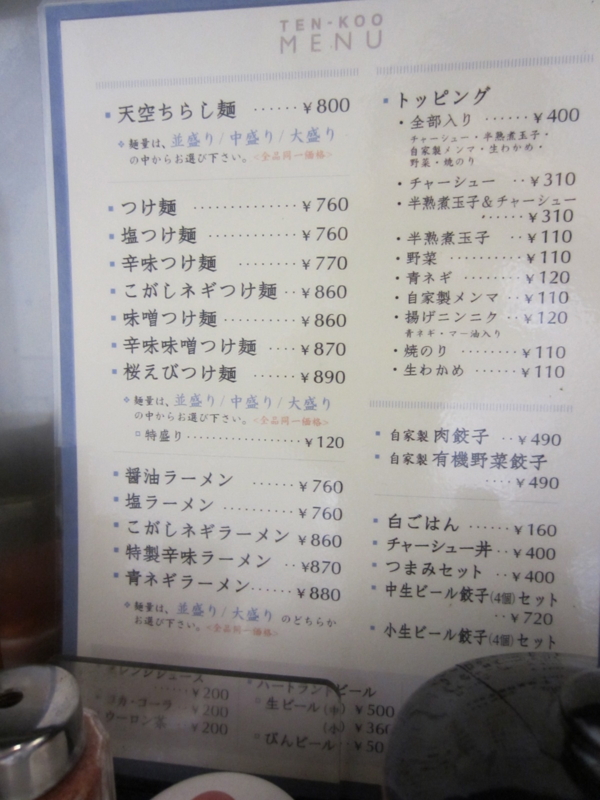 TEN-KOO
MENU
天空ちらし麺 ······￥800
麺量は、並盛り/中盛り/大盛り
の中からお選び下さい。<全品同一価格>
つけ麺 ·············￥760
塩つけ麺 ···········￥760
辛味つけ麺 ········￥770
こがしネギつけ麺 ··￥860
味噌つけ麺 ·········￥860
辛味味噌つけ麺 ····￥870
桜えびつけ麺 ······￥890
麺量は、並盛り/中盛り/大盛り
の中からお選び下さい。<全品同一価格>
特盛り·················￥120
醤油ラーメン ······￥760
塩ラーメン ·········￥760
こがしネギラーメン ··￥860
特製辛味ラーメン ··￥870
青ネギラーメン······￥880
麺量は、並盛り/大盛り のどちらか
お選び下さい。<全品同一価格>
トッピング
・全部入り ······￥400
チャーシュー・半熟煮玉子・
自家製メンマ・生わかめ・
野菜・焼のり
・チャーシュー ···￥310
・半熟煮玉子&チャーシュー
······￥310
・半熟煮玉子 ··￥110
・野菜 ··········￥110
・青ネギ ·······￥120
・自家製メンマ ··￥110
・揚げニンニク ··￥120
青ネギ・マー油入り
・焼のり ········￥110
・生わかめ ······￥110
自家製 肉餃子 ··￥490
自家製 有機野菜餃子
····￥490
白ごはん ······￥160
チャーシュー丼··￥400
つまみセット ···￥400
中生ビール餃子(4個)セット
··￥720
小生ビール餃子(4個)セット
レンジジュース
······￥200
コカ・コーラ ￥200
ウーロン茶 ··￥200
ハートランドビール
生ビール(中) ￥500
(小) ￥360
びんビール ￥50